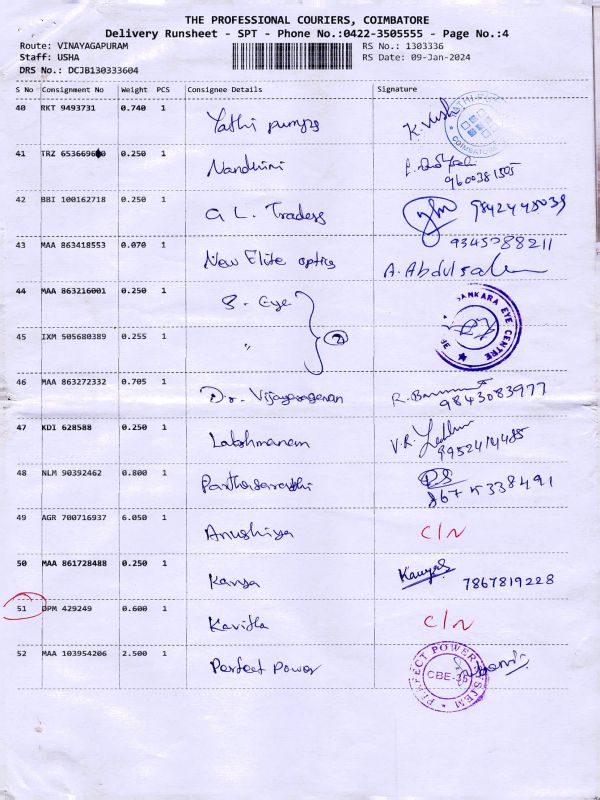 THE PROFESSIONAL COURIERS, COIMBATORE
Delivery Runsheet - SPT - Phone No.:0422-3505555 - Page No.:4
Route: VINAYAGAPURAM RS No.: 1303336
Staff: USHA RS Date: 09-Jan-2024
DRS No.: DCJB130333604
S No Consignment No Weight PCS Consignee Details Signature
40 RKT 9493731 0.740 1 Yathi pumps
41 TRZ 0.250 1 Nandhini
9600381505
42 BBI 100162718 0.250 1 G L. Traders 9842448039
43 MAA 863418553 0.070 1 New Elite optics 9345288211
A. Abdul
44 MAA 863216001 0.250 1 S- Eye
ANKARA EYE CENTRE
45 IXM 505680389 0.255 1 " 2
46 MAA 863272332 0.705 1 Dr. Vijayaragavan R.
9843083977
47 KDI 628588 0.250 1 Lakshmanan V.R.
48 NLM 90392462 0.800 1 Parthasarathi
49 AGR 700716937 6.050 1 Anushiya C/N
50 MAA 861728488 0.250 1 Kavya 7867819228
51 DPM 429249 0.600 1 Kavitha C/N
52 MAA 103954206 2.500 1 Perfect Power
PERFECT POWER SYSTEM
CBE-35